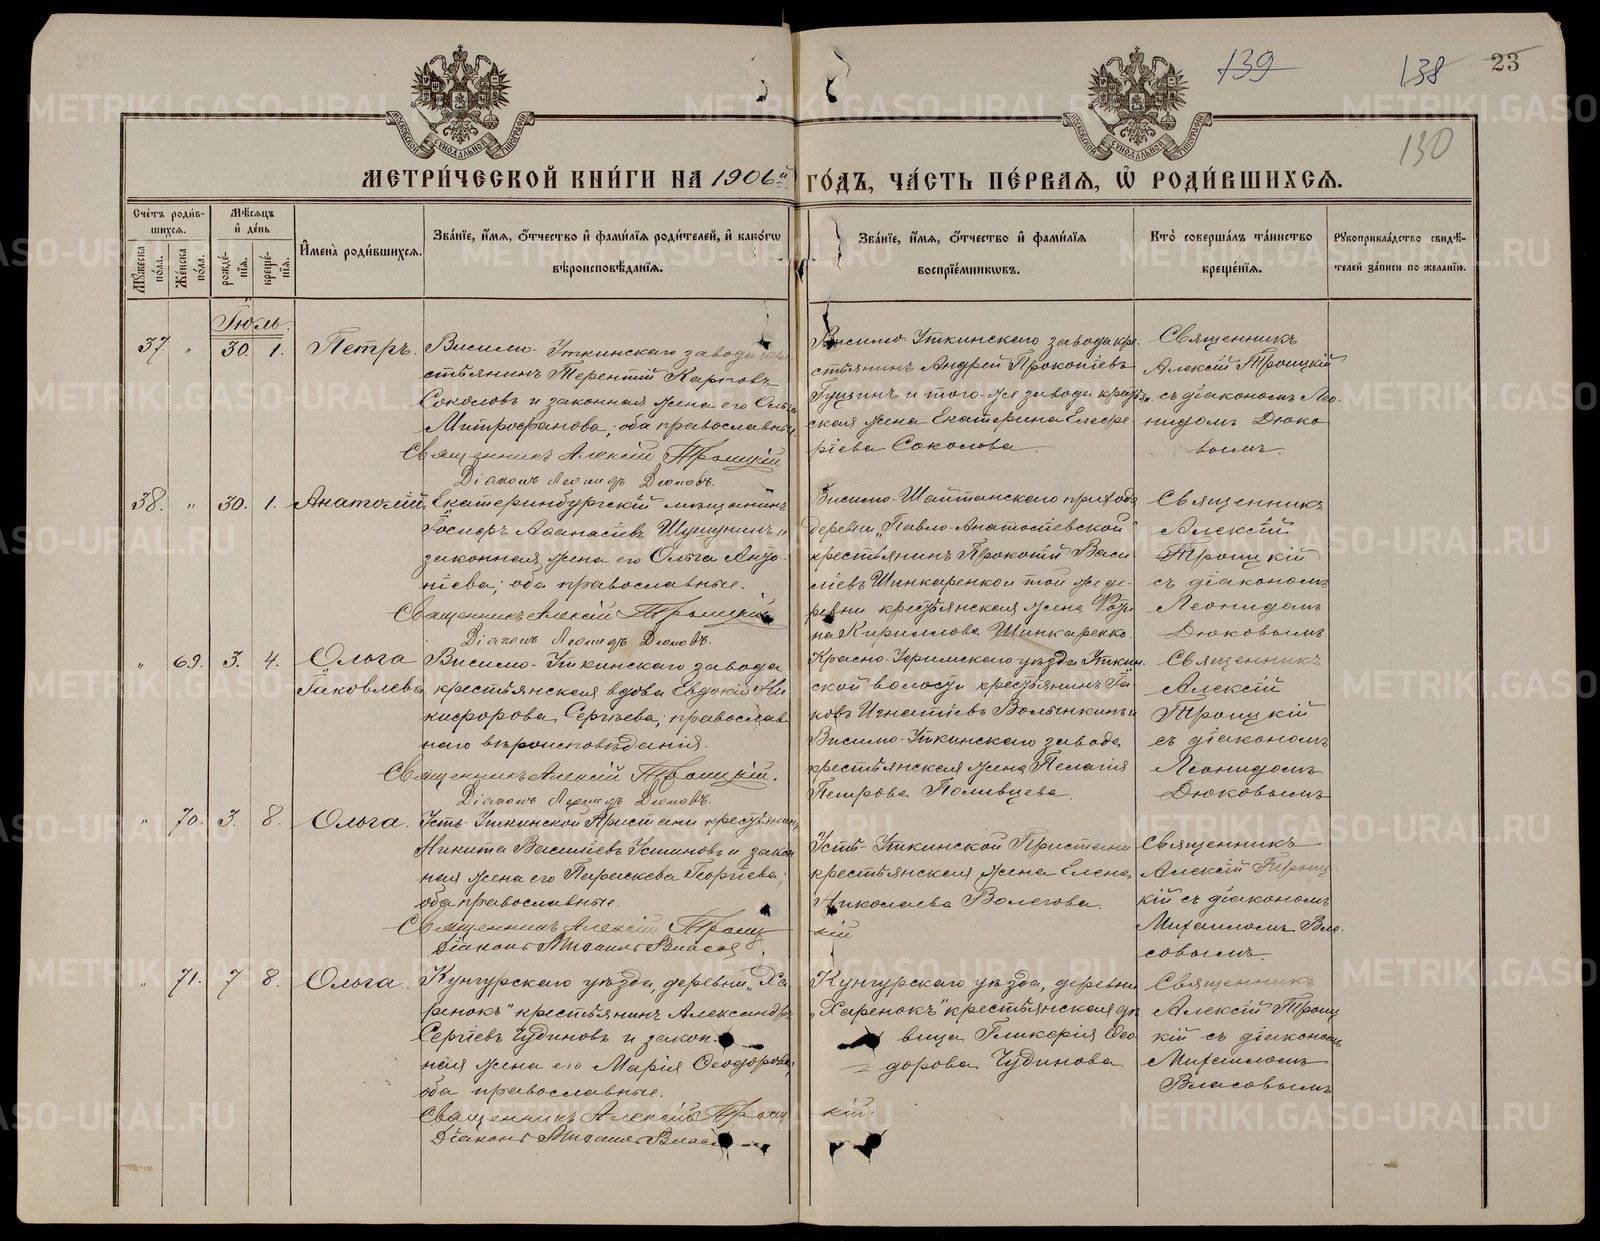 139
138
23
130
МЕТРИ́ЧЕСКОЙ КНИ́ГИ НА 1906й ГО́ДЪ, ЧА́СТЬ ПЕ́РВАЯ, Ѿ РОДИ́ВШИХСЯ.
Сче́тъ роди́в-
шихся.
Мꙋ́жеска по́ла.
Же́нска по́ла.
Мѣ́сяцъ
и҆ де́нь
рожде́-
нїя.
креще́-
нїя.
И҆мена̀ роди́вшихся.
Зва́нїе, и҆́мя, ѻ҆́тчество и҆ фами́лїя роди́телей, и҆ како́гѡ
вѣроисповѣ́данїя.
Зва́нїе, и҆́мя, ѻ҆́тчество и҆ фами́лїя
воспрїе́мникѡвъ.
Кто̀ соверша́лъ та́инство
креще́нїя.
Рꙋкоприкла́дство свидѣ́-
телей за́писи по жела́нїю.
Іюль.
37. " 30. 1. Петръ.
Висимо-Уткинскаго завода кре-
стьянинъ Терентій Карповъ
Соколовъ и законная жена его Ольга
Митрофанова; оба православные.
Священникъ Алексій Троицкій
Діаконъ Леонидъ Дюковъ.
Висимо-Уткинскаго завода кре-
стьянинъ Андрей Прокопіевъ
Гущинъ и того-же завода крестьян-
ская жена Екатерина Елефе
ріева Соколова.
Священникъ
Алексій Троицкій
съ діакономъ Лео
нидомъ Дюко
вымъ.
38. " 30. 1. Анатолій
Екатеринбургскій мѣщанинъ
Іосифъ Аѳанасіевъ и
законная жена его Ольга Анто
ніева; оба православные.
Священникъ Алексій Троицкій
Діаконъ Леонидъ Дюковъ.
Висимо-Шайтанскаго прихода
деревни „Павло-Анатольевской"
крестьянинъ Прокопій Васи
ліевъ Шинкаренко и той же де-
ревни крестьянская жена Фоти
на Кириллова Шинкаренко.
Священникъ
Алексій
Троицкій
съ діакономъ
Леонидомъ
Дюковымъ
" 69. 3. 4. Ольга
Іаковлева
Висимо-Уткинскаго завода
крестьянская вдова Евдокія Ни
кифорова Сергѣева; православ
наго вѣроисповѣданія.
Священникъ Алексій Троицкій.
Діаконъ Леонидъ Дюковъ.
Красно-Уфимскаго уѣзда Уткин-
ской волости крестьянинъ Іа-
ковъ Игнатіевъ Волынкинъ и
Висимо-Уткинскаго завода
крестьянская жена Пелагія
Петрова Поливцева.
Священникъ
Алексій
Троицкій
съ діакономъ
Леонидомъ
Дюковымъ
" 70. 3. 8. Ольга.
Усть-Уткинской Пристани крестьянинъ
Никита Василіевъ Устиновъ и закон
ная жена его Параскева Георгіева;
оба православные.
Священникъ Алексій Троицкій
Діаконъ Михаилъ Власов
Усть-Уткинской Пристани
крестьянская жена Елена
Николаева Волегова.
Священникъ
Алексій Троиц
кій съ діакономъ
Михаиломъ Вла
совымъ.
" 71. 7. 8. Ольга.
Кунгурскаго уѣзда, деревни „Ха
ренокъ" крестьянинъ Александръ
Сергіевъ Чудиновъ и закон-
ная жена его Марія Ѳеодорова;
оба православные.
Священникъ Алексій Троицкій.
Діаконъ Михаилъ Власов
Кунгурскаго уѣзда, деревни
„Харенокъ" крестьянская дѣ-
вица Гликерія Ѳео
дорова Чудинова
Священникъ
Алексій Троиц
кій съ діакономъ
Михаиломъ
Власовымъ
METRIKI.GASO-URAL.RU